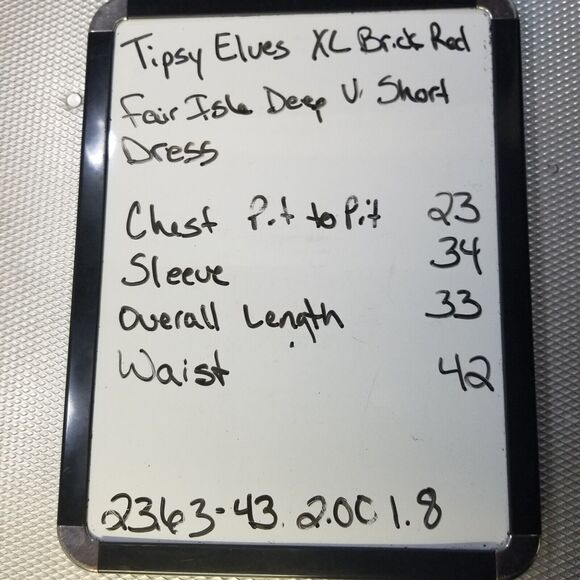 Tipsy Elves XL Brick Red
Fair Isle Deep V Short
Dress
Chest Pit to Pit 23
Sleeve 34
Overall Length 33
Waist 42
2363-43 2.00 1.8